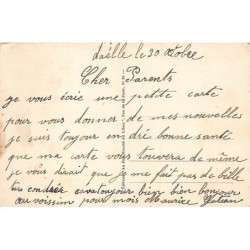 Laëlle le 30 octobre
Cher Parents
je vous écrie une petite carte
pour vous donner de mes nouvelles
je suis toujour en dré bonne santé
que ma carte vous touvera de même
je vous dirait que je me fait pas de bille
tu condrér esvatoujour bien bien bonjour
aur voissim pour mois Maurice